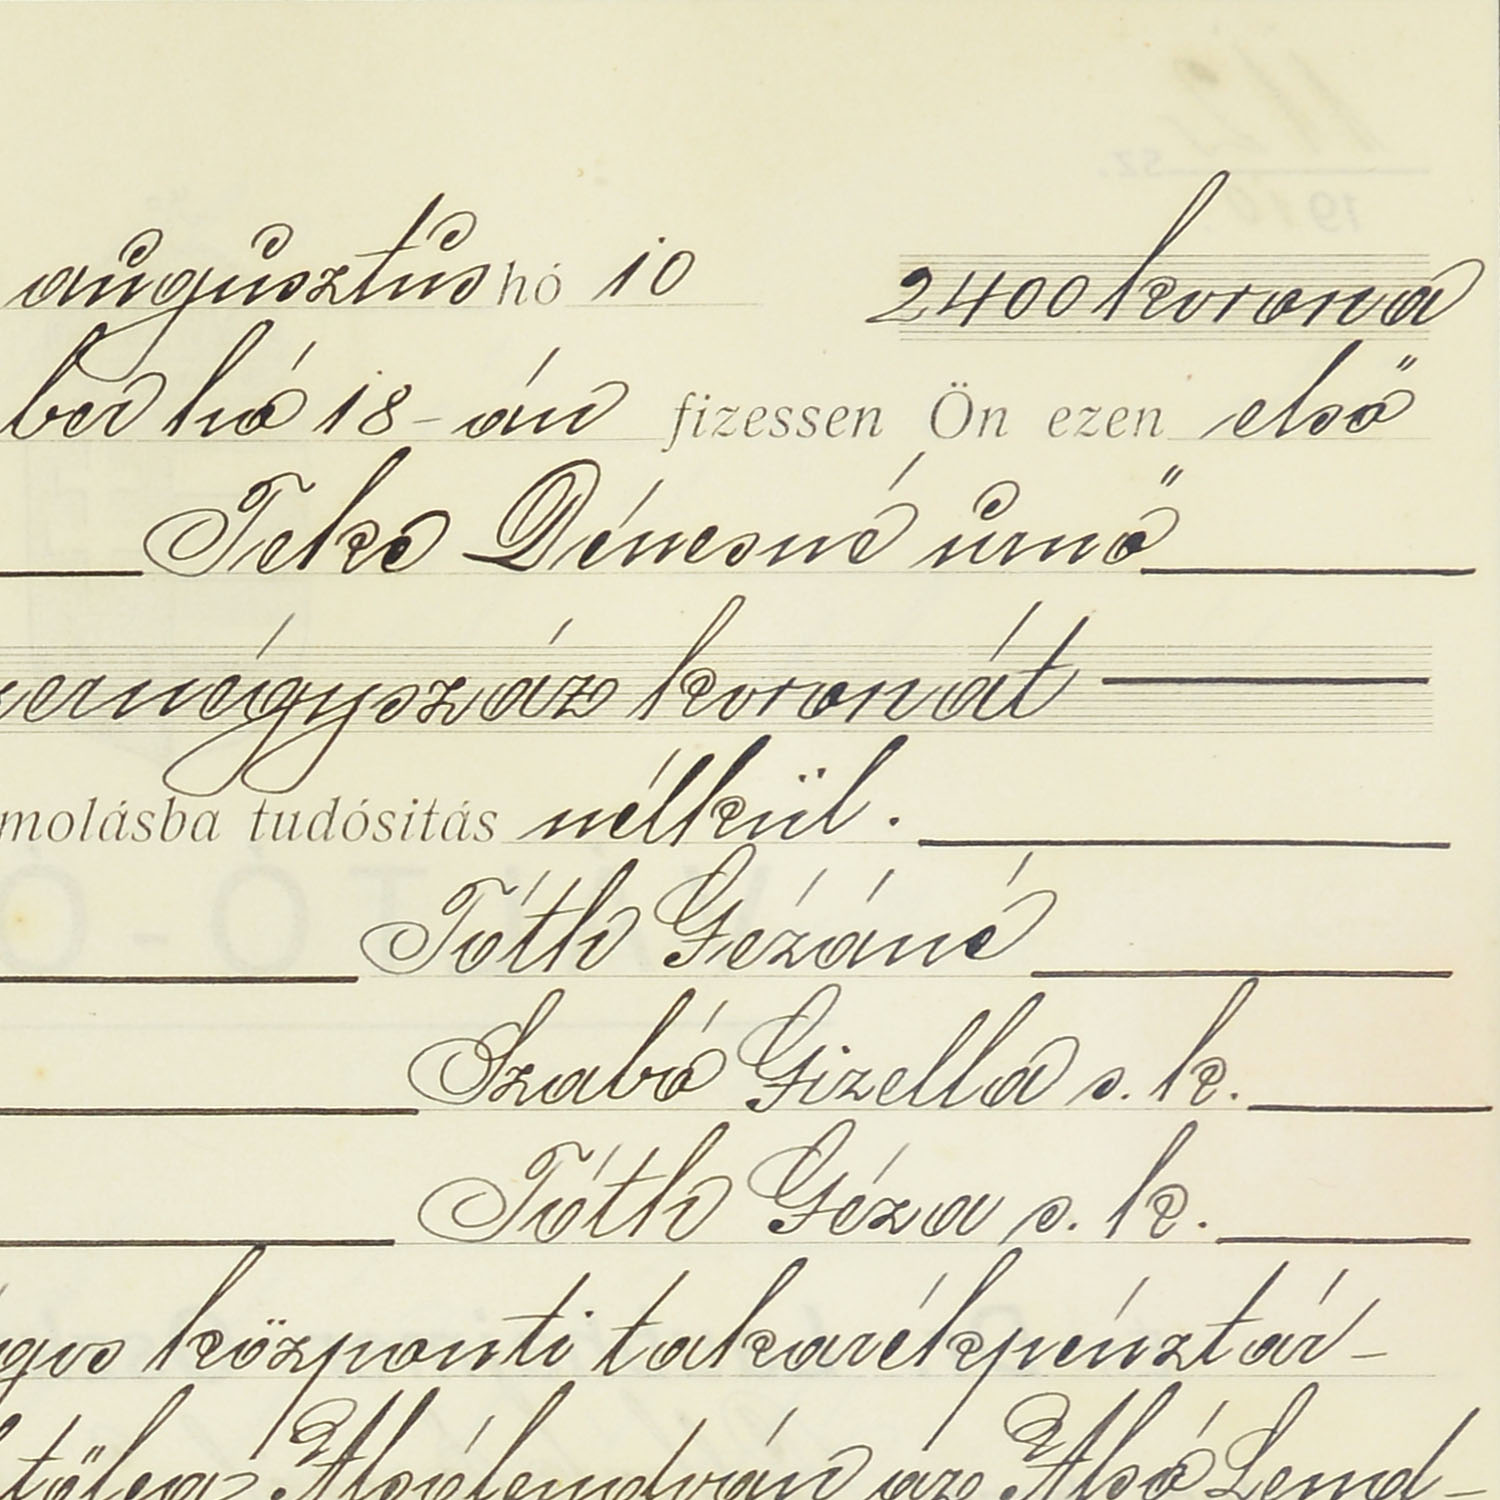 augusztus hó 10 2400 korona
ber hó 18-án fizessen Ön ezen első
Teke Dénesné úrnő
zernégyszáz koronát
molásba tudósitás nélkül.
Tóth Gézáné
Szabó Gizella s. k.
Tóth Géza s. k.
gos központi takarékpénztár-
Alsólendván az Alsó Lend-